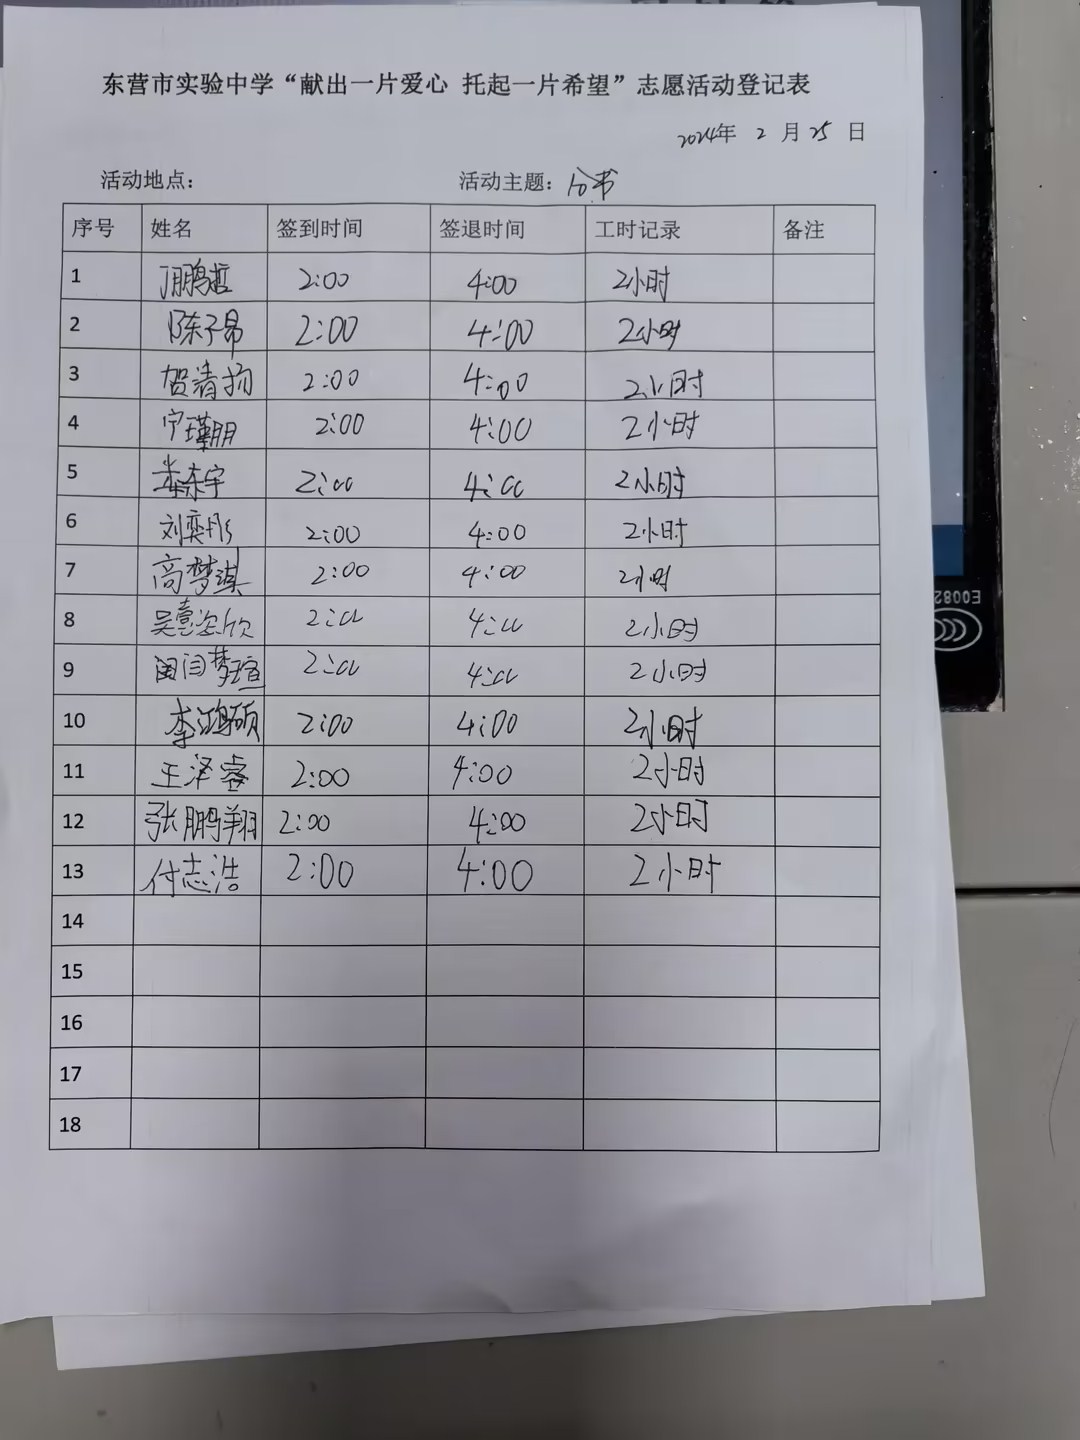 东营市实验中学“献出一片爱心 托起一片希望”志愿活动登记表
2024年 2 月 25 日
活动地点： 活动主题：分书
序号 姓名 签到时间 签退时间 工时记录 备注
1 鹏哲 2:00 4:00 2小时
2 陈子昂 2:00 4:00 2小时
3 贺清扬 2:00 4:00 2小时
4 宁瑾朋 2:00 4:00 2小时
5 娄东宇 2:00 4:00 2小时
6 刘奕彤 2:00 4:00 2小时
7 高梦淇 2:00 4:00 2小时
8 吴壹姿欣 2:00 4:00 2小时
9 闫梦瑄 2:00 4:00 2小时
10 李鸿硕 2:00 4:00 2小时
11 王泽睿 2:00 4:00 2小时
12 张鹏翔 2:00 4:00 2小时
13 付志浩 2:00 4:00 2小时
14
15
16
17
18
E0082